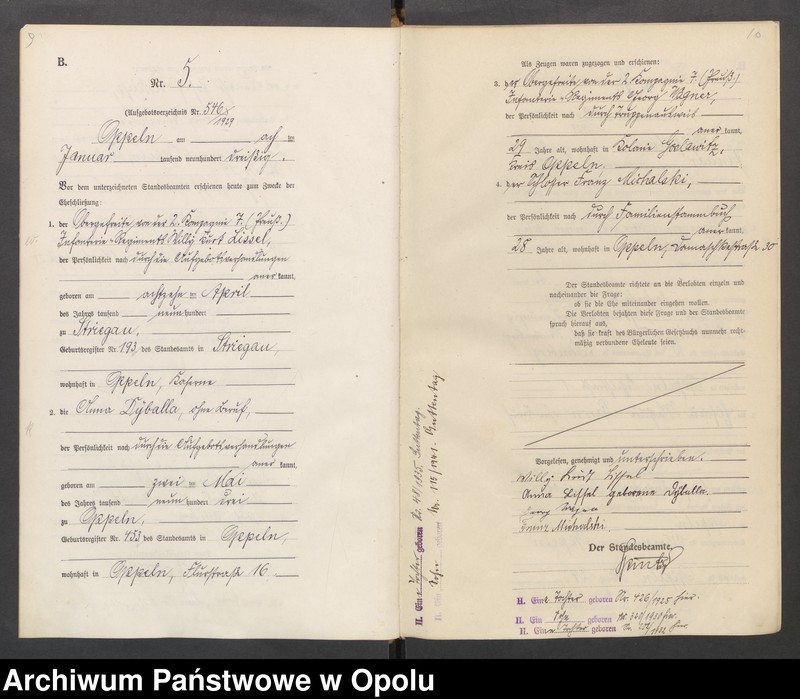 9
B.
Nr. 5.
(Aufgebotsverzeichnis Nr. 546/1929
Oppeln am acht im
Januar tausend neunhundert dreißig.
Vor dem unterzeichneten Standesbeamten erschienen heute zum Zwecke der
Eheschließung:
1. der Obergefreite von der 2. Kompagnie 7. (Preuß.)
Infanterie-Regiments Willy Kurt Lissel,
der Persönlichkeit nach durch die Aufgebotsverhandlungen
anerkannt,
geboren am achtzehn im April
des Jahres tausend neunhundert
zu Striegau,
Geburtsregister Nr. 193 des Standesamts in Striegau,
wohnhaft in Oppeln, Kaserne
2. die Anna Dyballa, ohne Beruf,
der Persönlichkeit nach durch die Aufgebotsverhandlungen
anerkannt,
geboren am zwei im Mai
des Jahres tausend neunhundert drei
zu Oppeln,
Geburtsregister Nr. 153 des Standesamts in Oppeln,
wohnhaft in Oppeln, Flurstraße 16.
10
Als Zeugen waren zugezogen und erschienen:
3. der Obergefreite von der 2. Kompagnie 7. (Preuß.)
Infanterie-Regiments Georg Wagner,
der Persönlichkeit nach durch Truppenausweis
anerkannt,
29 Jahre alt, wohnhaft in Kolonie Goslawitz,
Kreis Oppeln.
4. der Schlosser Franz Michalski,
der Persönlichkeit nach durch Familienstammbuch
anerkannt,
28 Jahre alt, wohnhaft in Oppeln, Damaschkestraße 30
Der Standesbeamte richtete an die Verlobten einzeln und
nacheinander die Frage:
ob sie die Ehe miteinander eingehen wollen.
Die Verlobten bejahten diese Frage und der Standesbeamte
sprach hierauf aus,
daß sie kraft des Bürgerlichen Gesetzbuchs nunmehr recht-
mäßig verbundene Eheleute seien.
Vorgelesen, genehmigt und unterschrieben.
Willy Kurt Lissel
Anna Lissel geborene Dyballa.
Georg Wagner
Franz Michalski.
Der Standesbeamte.
H. Eine Tochter geboren Nr. 426/1925 hier.
H. Ein Sohn geboren Nr. 320/1930 hier.
H. Eine Tochter geboren Nr.
H. Eine Tochter geboren Guttentag.
Sohn Nr. Guttentag
Archiwum Państwowe w Opolu